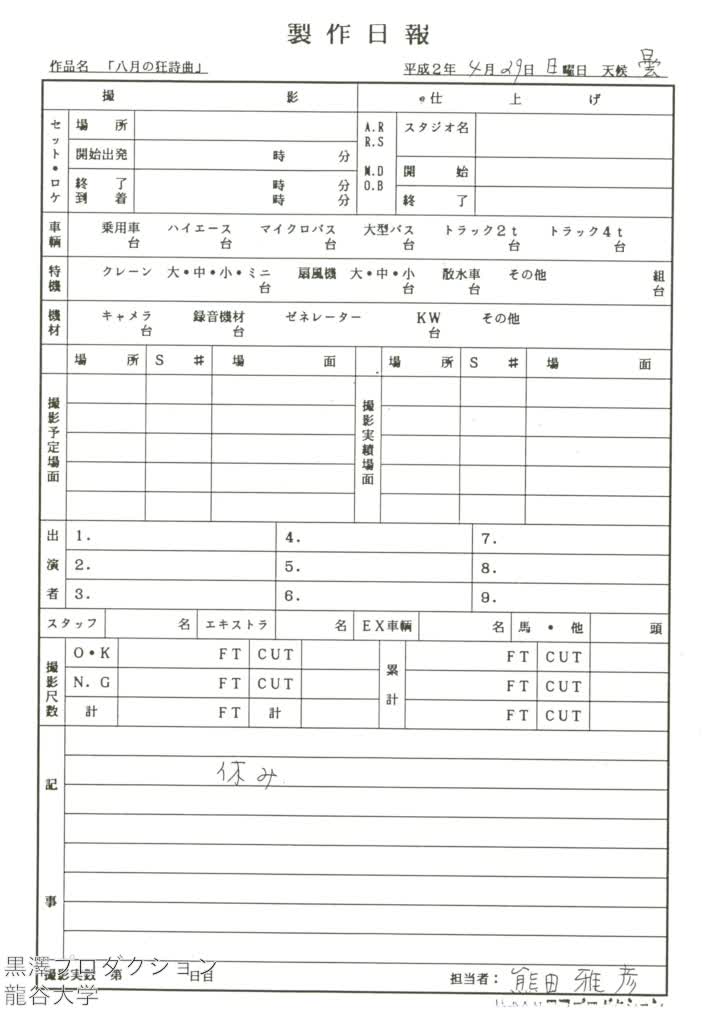 製作日報
作品名 「八月の狂詩曲」 平成2年 4月 29日 日曜日 天候 曇
撮 影 仕 上 げ
セット・ロケ 場 所 A.R R.S M.D O.B スタジオ名
開始出発 時 分 開 始
終 了 時 分
到 着 時 分 終 了
車輌 乗用車 ハイエース マイクロバス 大型バス トラック2t トラック4t
台 台 台 台 台 台
特機 クレーン 大・中・小・ミニ 扇風機 大・中・小 散水車 その他 組
台 台 台 台
機材 キャメラ 録音機材 ゼネレーター KW その他
台 台 台
場 所 S # 場 面 場 所 S # 場 面
撮影予定場面 撮影実績場面
出演者 1. 4. 7.
2. 5. 8.
3. 6. 9.
スタッフ 名 エキストラ 名 EX車輌 名 馬・他 頭
撮影尺数 O・K FT CUT 累計 FT CUT
N.G FT CUT FT CUT
計 FT 計 FT CUT
記事
休み
撮影実数 第 日目 担当者: 熊田雅彦
黒澤プロダクション
龍谷大学